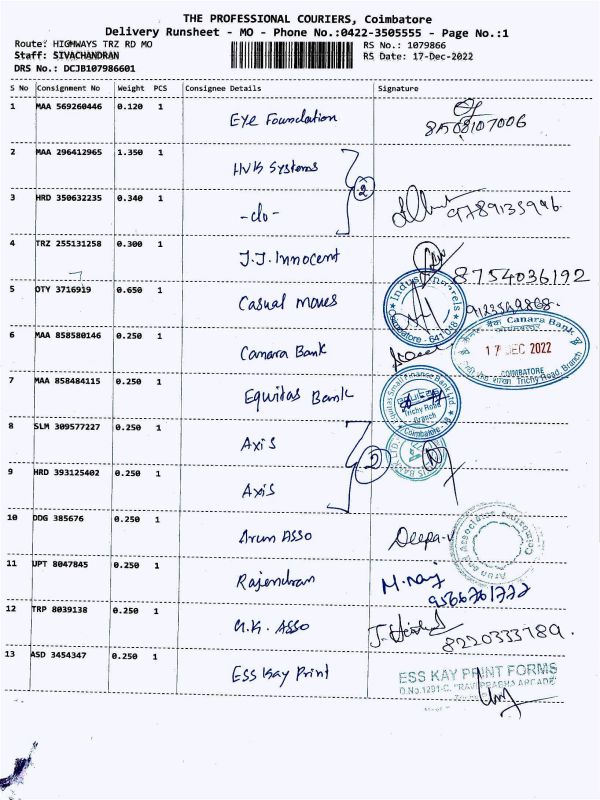 THE PROFESSIONAL COURIERS, Coimbatore
Delivery Runsheet - MO - Phone No.:0422-3505555 - Page No.:1
Route: HIGHWAYS TRZ RD MO RS No.: 1079866
Staff: SIVACHANDRAN RS Date: 17-Dec-2022
DRS No.: DCJB107986601
S No Consignment No Weight PCS Consignee Details Signature
1 MAA 569260446 0.120 1 Eye Foundation
8508107006
2 MAA 296412965 1.350 1 HVK Systems
2
3 HRD 350632235 0.340 1 -do- 9789135996
4 TRZ 255131258 0.300 1 J.J. Innocent 8754036192
5 OTY 3716919 0.650 1 Casual Moves
Coimbatore - 641 018
6 MAA 858580146 0.250 1 Canara Bank
Canara Bank
17 DEC 2022
COIMBATORE
Trichy Road, Branch
7 MAA 858484115 0.250 1 Equitas Bank
Equitas Small Finance Bank Ltd
Trichy Road
Branch
Coimbatore - 18
8 SLM 309577227 0.250 1 Axis
2
9 HRD 393125402 0.250 1 Axis
10 DDG 385676 0.250 1 Arun ASSO Deepa.V
Arun and Associates Coimbatore
11 UPT 8047845 0.250 1 Rajendran M. Raj
9566761772
12 TRP 8039138 0.250 1 M.K. ASSO
8220333789.
13 ASD 3454347 0.250 1 Ess Kay Print
ESS KAY PRINT FORMS
D.No.1291-C, "RAVI PRABHA ARCADE"